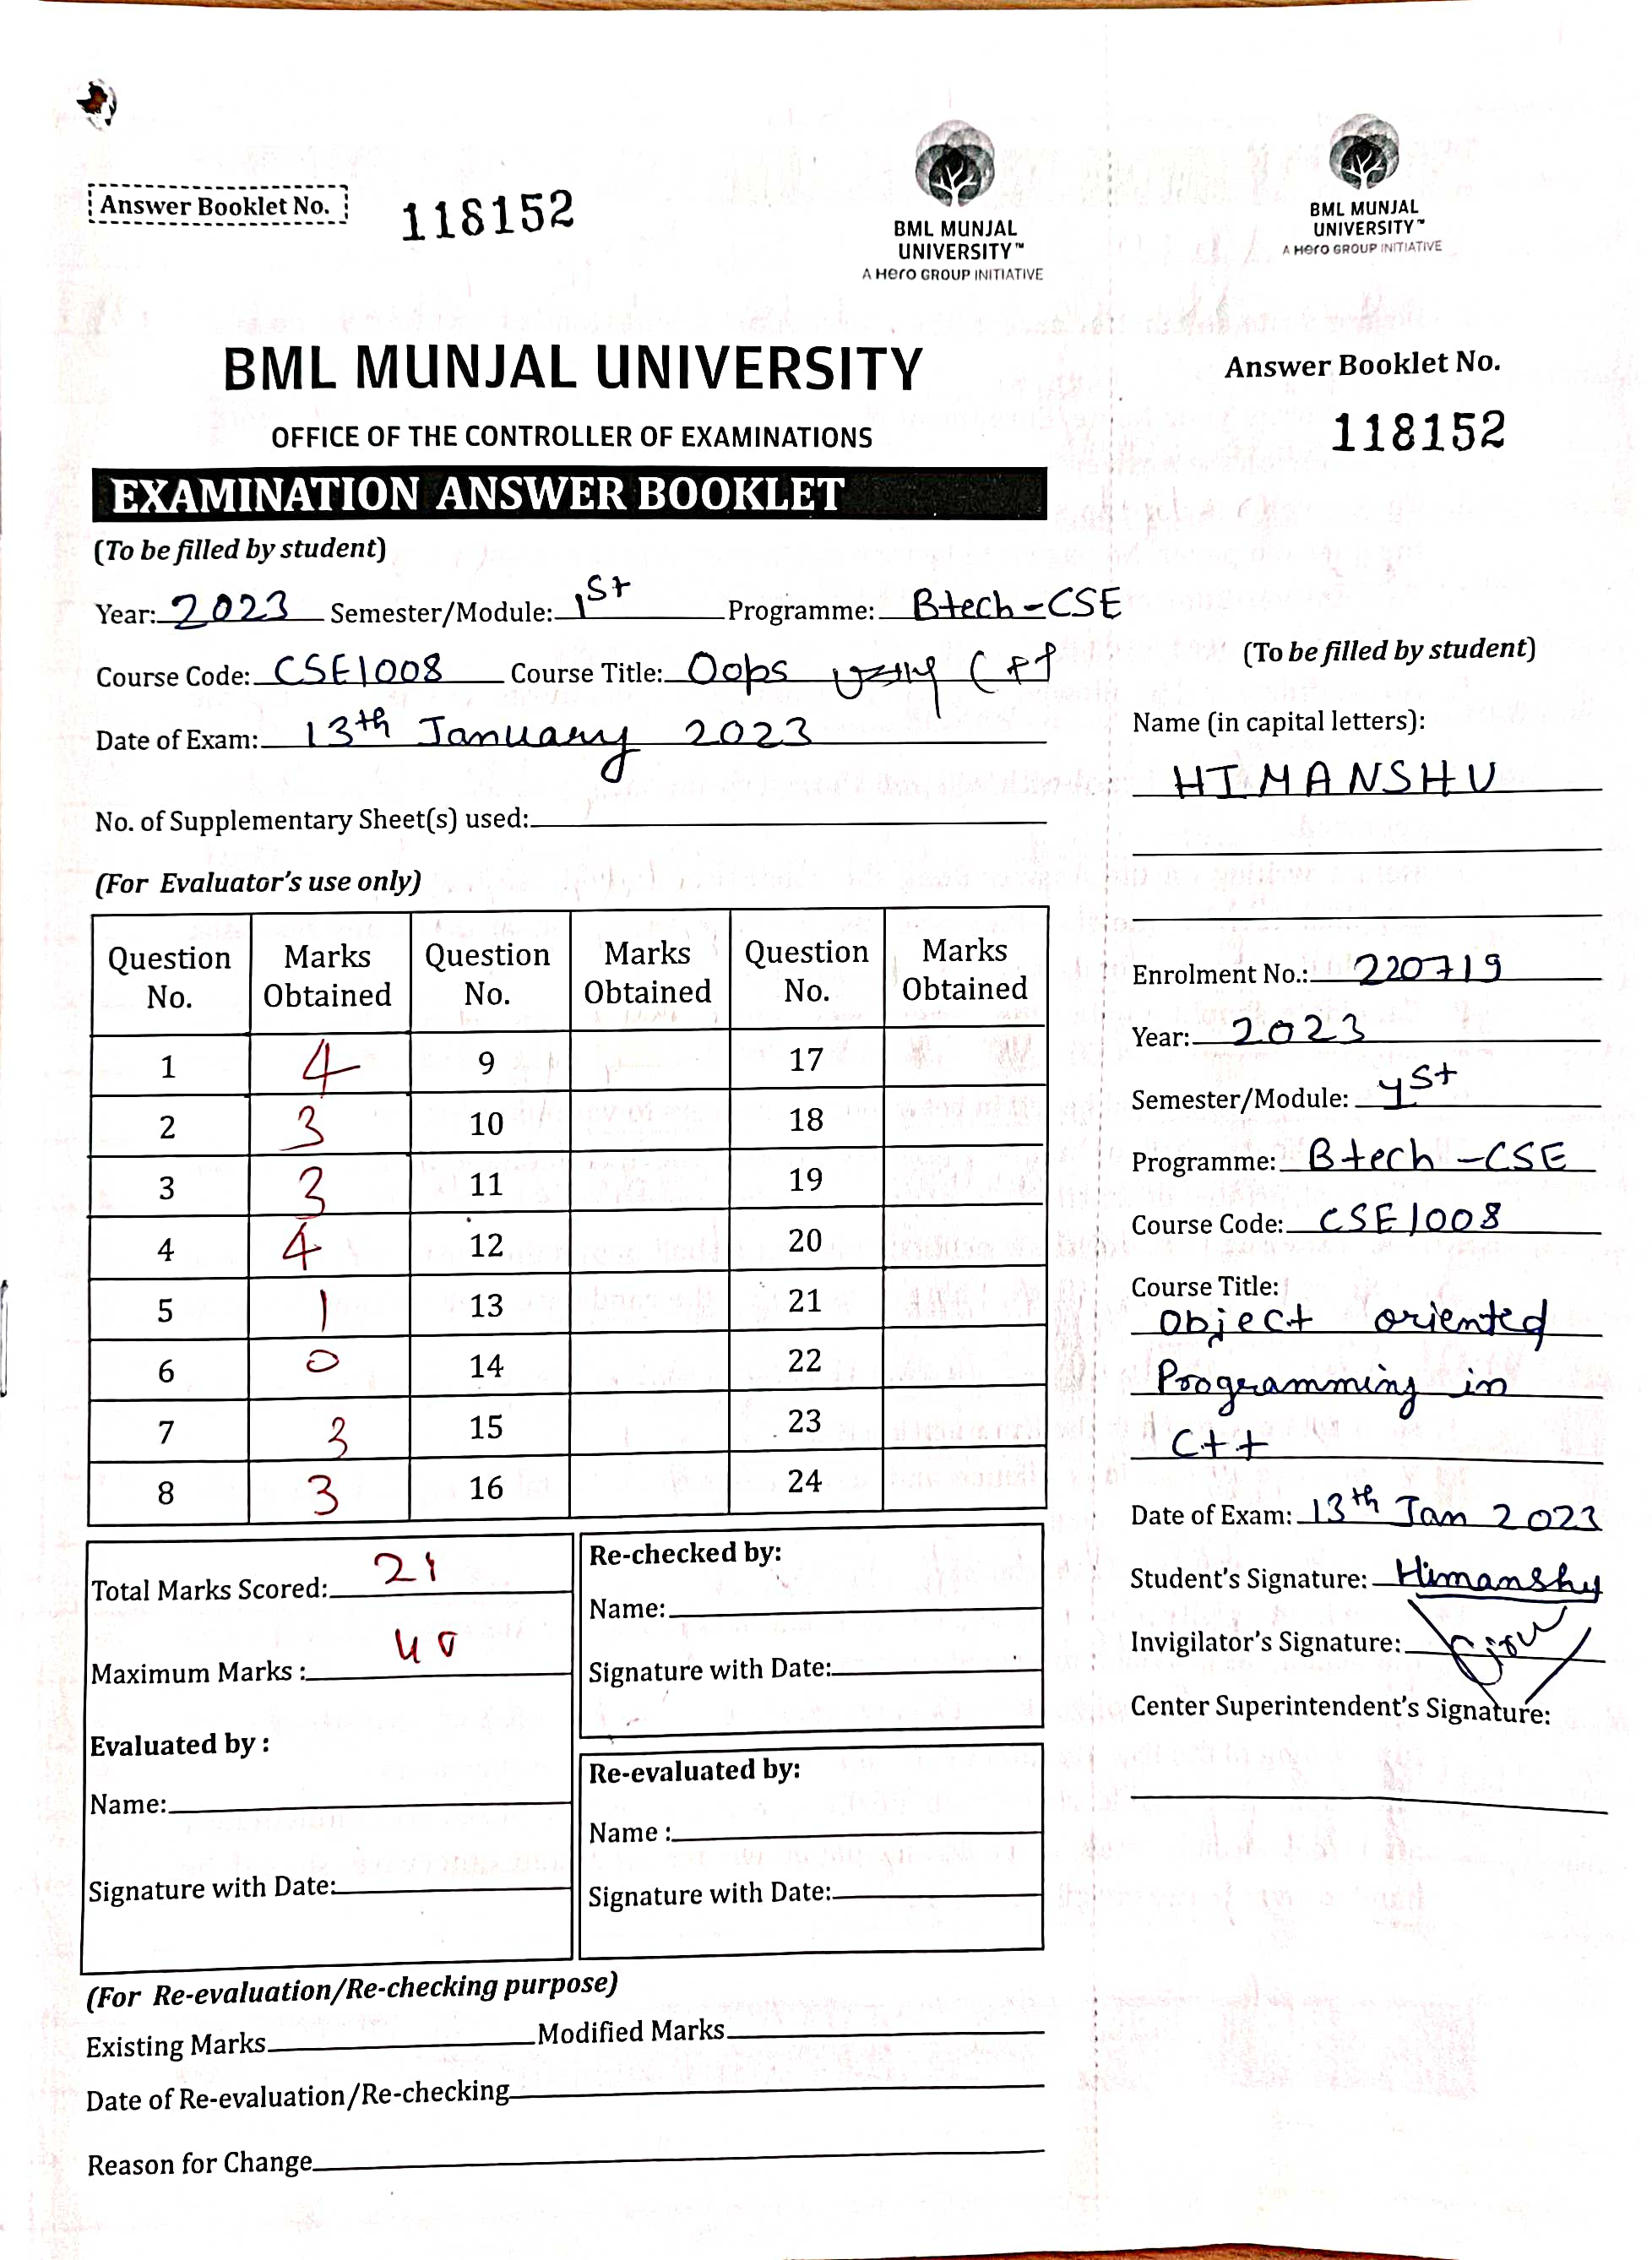 Answer Booklet No. 118152
BML MUNJAL
UNIVERSITY™
A Hero GROUP INITIATIVE
BML MUNJAL UNIVERSITY
OFFICE OF THE CONTROLLER OF EXAMINATIONS
EXAMINATION ANSWER BOOKLET
(To be filled by student)
Year: 2023 Semester/Module: 1st Programme: Btech-CSE
Course Code: CSE1008 Course Title: Oops using C++
Date of Exam: 13th January 2023
No. of Supplementary Sheet(s) used:
(For Evaluator's use only)
Question No. Marks Obtained Question No. Marks Obtained Question No. Marks Obtained
1 4 9 17
2 3 10 18
3 3 11 19
4 4 12 20
5 1 13 21
6 0 14 22
7 3 15 23
8 3 16 24
Total Marks Scored: 21
Maximum Marks : 40
Evaluated by :
Name:
Signature with Date:
Re-checked by:
Name:
Signature with Date:
Re-evaluated by:
Name :
Signature with Date:
(For Re-evaluation/Re-checking purpose)
Existing Marks Modified Marks
Date of Re-evaluation/Re-checking
Reason for Change
BML MUNJAL
UNIVERSITY™
A Hero GROUP INITIATIVE
Answer Booklet No.
118152
(To be filled by student)
Name (in capital letters):
HIMANSHU
Enrolment No.: 220719
Year: 2023
Semester/Module: 1st
Programme: Btech-CSE
Course Code: CSE1008
Course Title:
Object oriented
Programming in
C++
Date of Exam: 13th Jan 2023
Student's Signature: Himanshu
Invigilator's Signature:
Center Superintendent's Signature: